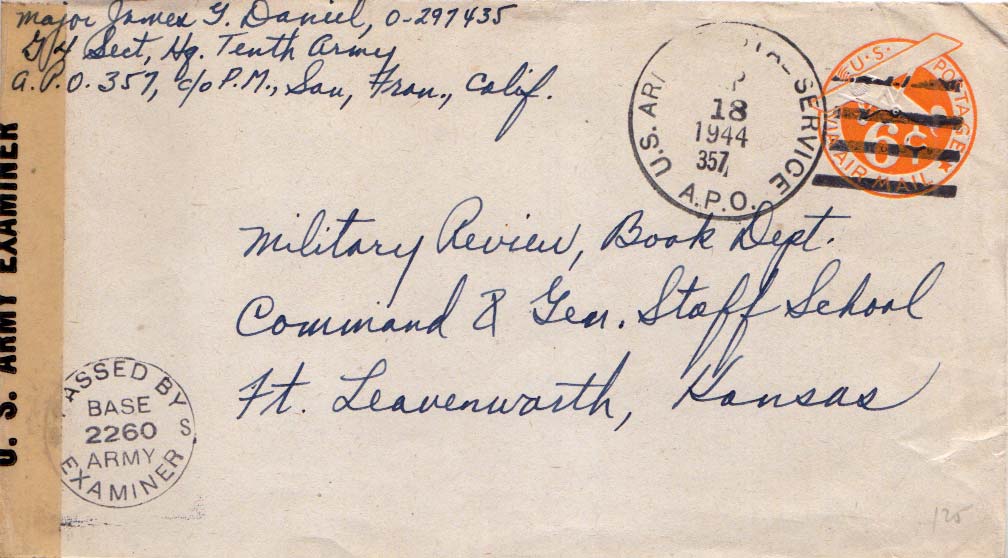 Major James G. Daniel, O-297435
G4 Sect, Hq. Tenth Army
A.P.O. 357, c/o P.M., San, Fran., Calif.
U.S. ARMY EXAMINER
SERVICE
18
1944
357
U.S. AR
A.P.O.
U.S. POSTAGE
6¢
VIA AIR MAIL
Military Review, Book Dept.
Command & Gen. Staff School
Ft. Leavenworth, Kansas
PASSED BY
BASE
2260
ARMY
EXAMINER
S
125